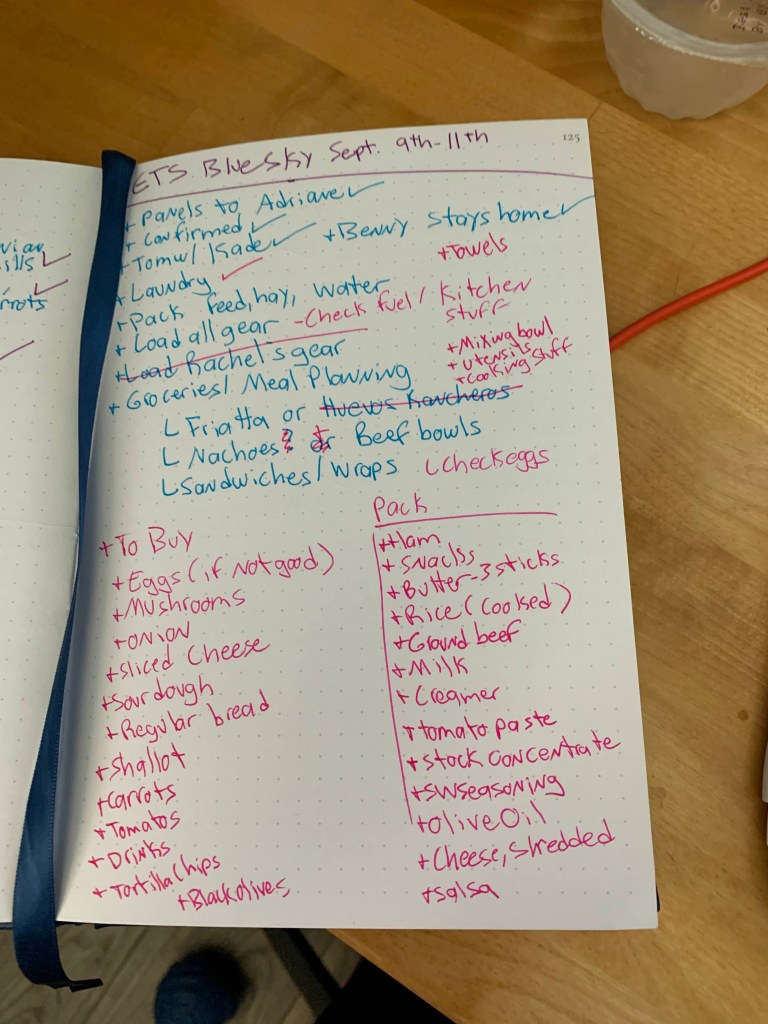 125
ETS BlueSky Sept. 9th-11th
+ Panels to Adriane ✓
+ Confirmed ✓
+ Benny stays home ✓
+ Tom w/ Isade ✓
+ Towels
+ Laundry ✓
+ Pack feed, hay, water
+ Load all gear - Check fuel / Kitchen stuff
+ Mixing bowl
+ utensils
+ cooking stuff
+ Load Rachel's gear
+ Groceries / Meal Planning
L Friatta or Huevos Rancheros
L Nachoes? or Beef bowls
L Sandwiches / wraps L Check eggs
+ To Buy
+ Eggs (if not good)
+ Mushrooms
+ onion
+ Sliced Cheese
+ Sourdough
+ Regular bread
+ Shallot
+ Carrots
+ Tomatos
+ Drinks
+ Tortilla Chips
+ Black olives
Pack
+ Ham
+ Snacks
+ Butter - 3 sticks
+ Rice (cooked)
+ Ground beef
+ Milk
+ Creamer
+ tomato paste
+ Stock concentrate
+ SW seasoning
+ Olive Oil
+ Cheese, Shredded
+ salsa